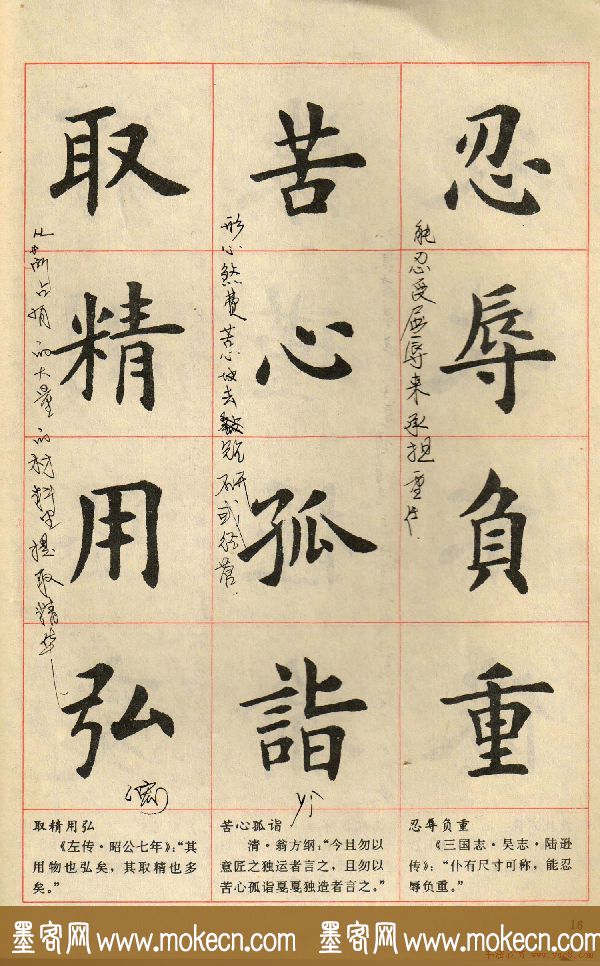 忍辱负重
能忍受屈辱来承担重任.
苦心孤詣
形心煞费苦心地去
研或经营.
取精用弘
占有的大量的材料里提取精华
(宏)
yì
取精用弘
《左传·昭公七年》：“其
用物也弘矣，其取精也多
矣。”
苦心孤诣
清·翁方纲：“今且勿以
意匠之独运者言之，且勿以
苦心孤诣戛戛独造者言之。”
忍辱负重
《三国志·吴志·陆逊
传》：“仆有尺寸可称，能忍
辱负重。”
16
墨客网 www.mokecn.com 墨客网 www.mokecn.com